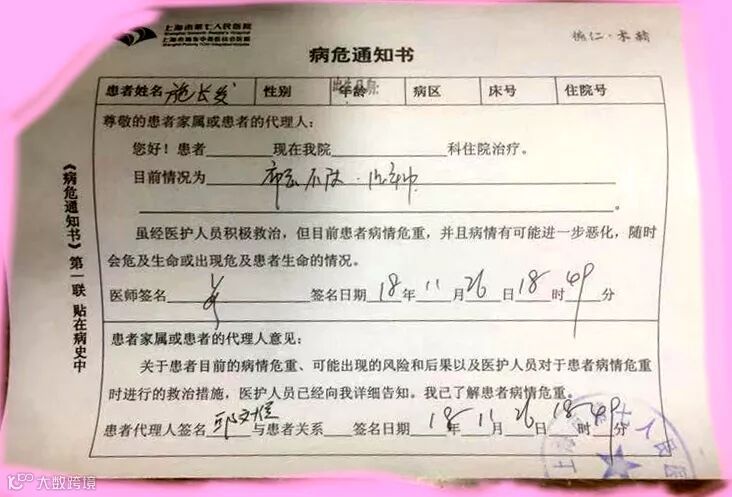 上海市第七人民医院
Shanghai Seventh People's Hospital
上海市浦东中西医结合医院
病危通知书
患者姓名 施长发 性别 年龄 病区 床号 住院号
尊敬的患者家属或患者的代理人：
您好！患者 现在我院 科住院治疗。
目前情况为
虽经医护人员积极救治，但目前患者病情危重，并且病情有可能进一步恶化，随时
会危及生命或出现危及患者生命的情况。
医师签名 签名日期 18 年 11 月 26 日 18 时 49 分
患者家属或患者的代理人意见：
关于患者目前的病情危重、可能出现的风险和后果以及医护人员对于患者病情危重
时进行的救治措施，医护人员已经向我详细告知。我已了解患者病情危重。
患者代理人签名 与患者关系 签名日期 18 年 11 月 26 日 18 时 49 分
《病危通知书》第一联 贴在病史中
大数跨境